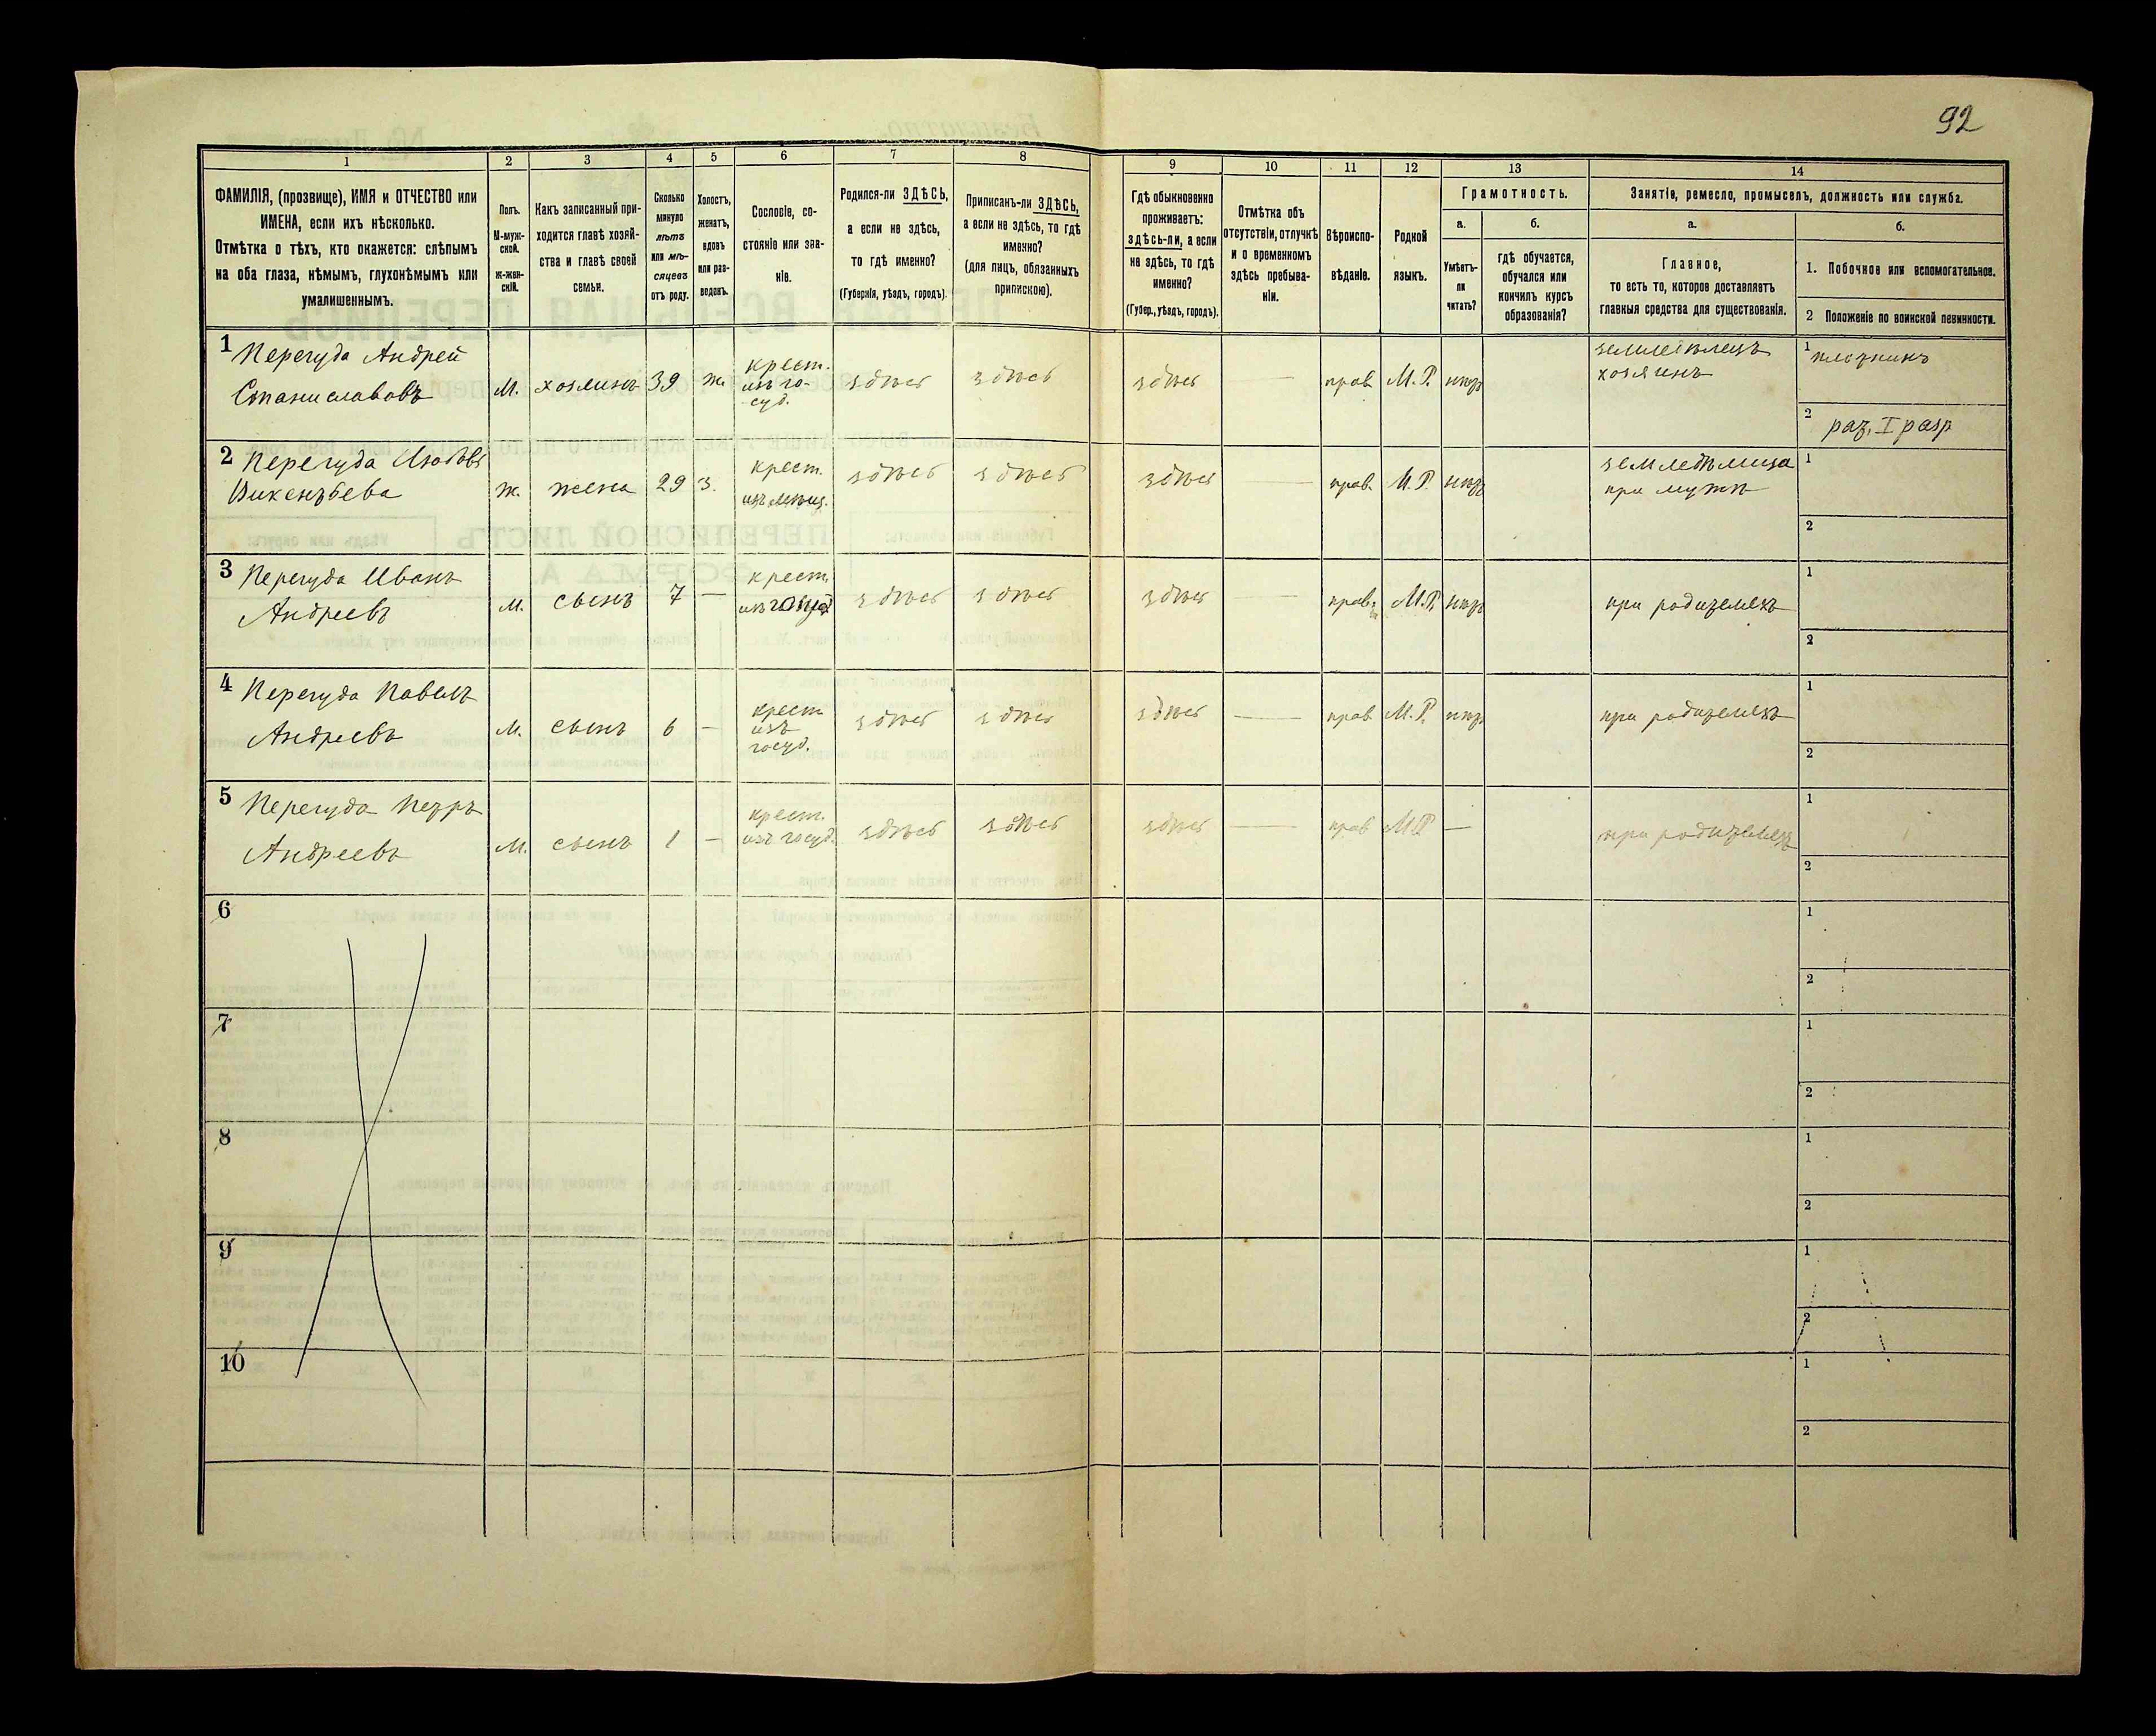 92
1 2 3 4 5 6 7 8 9 10 11 12 13 14
ФАМИЛІЯ, (прозвище), ИМЯ и ОТЧЕСТВО или
ИМЕНА, если ихъ нѣсколько.
Отмѣтка о тѣхъ, кто окажется: слѣпымъ
на оба глаза, нѣмымъ, глухонѣмымъ или
умалишеннымъ.
Полъ.
М-муж-
ской.
ж-жен-
скій.
Какъ записанный при-
ходится главѣ хозяй-
ства и главѣ своей
семьи.
Сколько
минуло
лѣтъ
или мѣ-
сяцевъ
отъ роду.
Холостъ,
женатъ,
вдовъ
или раз-
веденъ.
Сословіе, со-
стояніе или зва-
ніе.
Родился-ли ЗДѢСЬ,
а если не здѣсь,
то гдѣ именно?
(Губернія, уѣздъ, городъ).
Приписанъ-ли ЗДѢСЬ,
а если не здѣсь, то гдѣ
именно?
(для лицъ, обязанныхъ
припискою).
Гдѣ обыкновенно
проживаетъ:
здѣсь-ли, а если
не здѣсь, то гдѣ
именно?
(Губер., уѣздъ, городъ).
Отмѣтка объ
отсутствіи, отлучкѣ
и о временномъ
здѣсь пребыва-
ніи.
Вѣроиспо-
вѣданіе.
Родной
языкъ.
Грамотность.
а.
Умѣетъ-
ли
читать?
б.
гдѣ обучается,
обучался или
кончилъ курсъ
образованія?
Занятіе, ремесло, промыселъ, должность или служба.
а.
Главное,
то есть то, которое доставляетъ
главныя средства для существованія.
б.
1. Побочное или вспомогательное.
2 Положеніе по воинской повинности.
1 Перегуда Андрей
Станиславовъ
М. хозяинъ 39 ж.
крест.
изъ го-
суд.
здѣсь здѣсь здѣсь — прав. М.Р. нѣтъ
земледѣлецъ
хозяинъ
1 плотникъ
2 рат. I разр
2 Перегуда Любовь
Викентьева
ж. жена 29 з.
крест.
изъ мѣщ.
здѣсь здѣсь здѣсь — прав. М.Р. нѣтъ
земледѣлица
при мужѣ
1
2
3 Перегуда Иванъ
Андреевъ
М. сынъ 7 —
крест.
здѣсь здѣсь здѣсь — прав. М.Р. нѣтъ
при родителяхъ
1
2
4 Перегуда Павелъ
Андреевъ
М. сынъ 6 —
крест
изъ
госуд.
здѣсь здѣсь здѣсь — прав М.Р. нѣтъ
при родителяхъ
1
2
5 Перегуда Петръ
Андреевъ
М. сынъ 1 —
крест.
изъ госуд.
здѣсь здѣсь здѣсь — прав М.Р. —
при родителяхъ
1
2
6
1
2
7
1
2
8
1
2
9
1
2
10
1
2